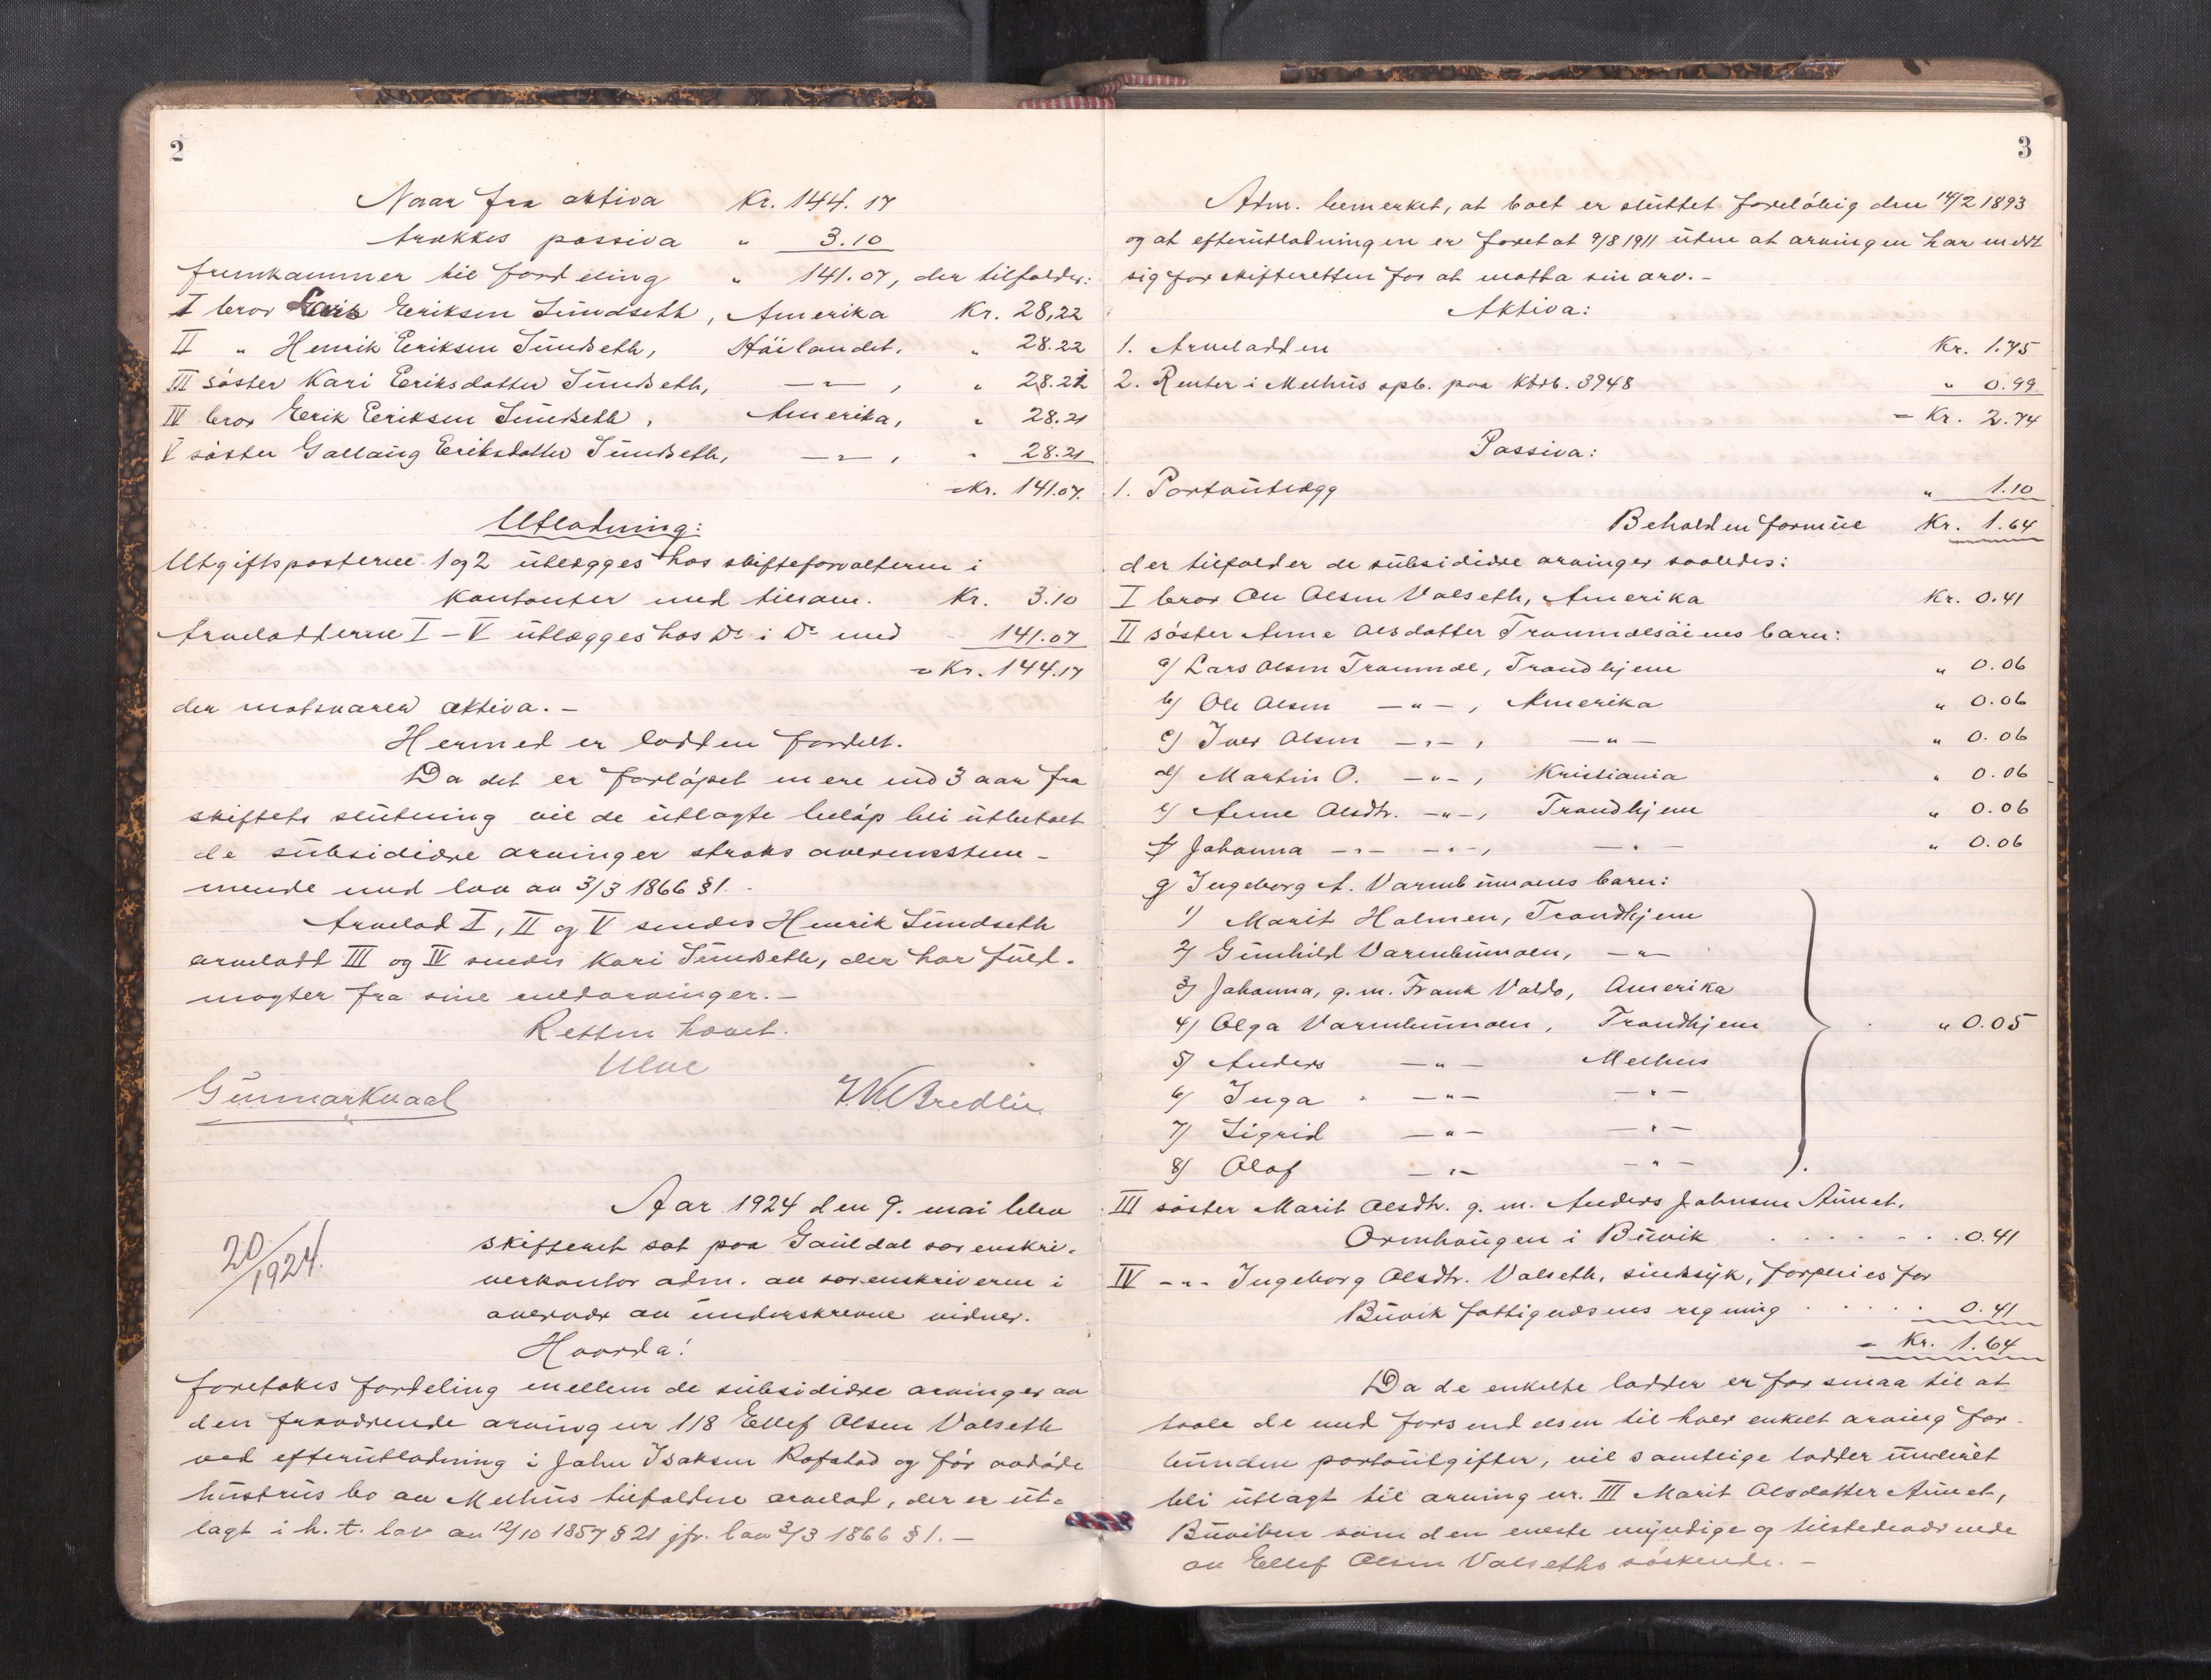 2
Naar fra aktiva Kr. 144.17
trækkes passiva " 3.10
fremkommer til fordeling " 141.07, der tilfalder:
I bror Eriksen Sundseth, Amerika Kr. 28,22
II " Henrik Eriksen Sundseth, Höilandet, " 28.22
III søster Kari Eriksdatter Sundseth, —"— , " 28.21
IV bror Erik Eriksen Sundseth, Amerika, " 28.21
V søster Gallaug Eriksdatter Sundseth, —"— , " 28.21
= Kr. 141.07.
Utlodning:
Utgiftsposterne 1 og 2 utlægges hos skifteforvalteren i
kontanter med tilsam. Kr. 3.10
Arveloddene I – V utlægges hos Do i Do med 141.07
= Kr. 144.17
der motsvarer aktiva. –
Hermed er lodden fordelt.
Da det er forløpet mere end 3 aar fra
skiftets slutning vil de utlagte beløp bli utbetalt
de subsidiære arvinger straks overensstem-
mende med lov av 3/3 1866 § 1. -
Arvelod I, II og V sendes Henrik Sundseth
arvelodd III og IV sendes Kari Sundseth, der har fuld-
magter fra sine medarvinger. –
Retten hævet.
Ulve
Gunnar Kvaal
20/1924.
Aar 1924 den 9. mai blev
skifteret sat paa Gauldal sorenskri-
verkontor adm. av sorenskriveren i
overvær av underskrevne vidner.
Hvorda:
foretokes fordeling mellem de subsidiære arvinger av
den fraværende arving nr 118 Ellef Olsen Valseth
ved efterutlodning i John Isaksen Rofstad og før avdøde
hustrus bo av Melhus tilfaldne arvelod, der er ut-
lagt i h. t. lov av 12/10 1857 § 21 jfr. lov 3/3 1866 § 1. –
3
Adm. bemerket, at boet er sluttet foreløbig den 14/2 1893
og at efterutlodningen er foretat 9/8 1911 uten at arvingen har meldt
sig for skifteretten for at motta sin arv. –
Aktiva:
1. Arvelodden Kr. 1.75
2. Renter i Melhus spb. paa Ktrb. 3948 " 0.99
= Kr. 2.74
Passiva:
1. Portoutlægg " 1.10
Beholden formue Kr. 1.64
der tilfalder de subsidiære arvinger saaledes:
I bror Ole Olsen Valseth, Amerika Kr. 0.41
II søster Anne Olsdatter barn:
a) Lars Olsen Trondhjem " 0.06
b) Ole Olsen —"— , Amerika " 0.06
c) Iver Olsen —"— , —"— " 0.06
d) Martin O. —"— , Kristiania " 0.06
e) Anne Olsdtr. —"— , Trondhjem " 0.06
f) Johanna —"— —"— , —"— " 0.06
g) Ingeborg A. Varmbumoens barn:
1) Marit Holmen, Trondhjem
2) Gunhild Varmbumoen, —"—
3) Johanna, g. m. Frank Valdo, Amerika
4) Olga Varmbumoen, Trondhjem " 0.05
5) Anders —"— Melhus
6) Inga —"— —"—
7) Sigrid —"— —"—
8) Olaf —"— —"—
III søster Marit Olsdtr. g. m. Anders Johnsen Aunet,
Ormhaugen i Buvik . . . . . . . 0.41
IV —"— Ingeborg Olsdtr. Valseth, sindsyk, forpleies for
Buvik fattigvæsens regning . . . . . 0.41
= Kr. 1.64
Da de enkelte lodder er for smaa til at
taale de med forsendelsen til hver enkelt arving for-
bunden portoutgifter, vil samtlige lodder undtat
bli utlagt til arving nr. III Marit Olsdatter Aunet,
Buviken som den eneste myndige og tilstedeværende
av Ellef Olsen Valseths søskende. –